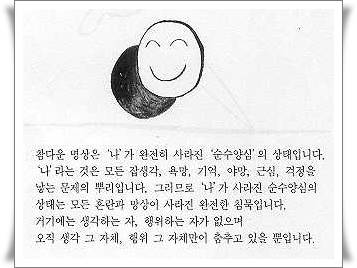 참다운 명상은 '나'가 완전히 사라진 '순수양심'의 상태입니다.
'나'라는 것은 모든 잡생각, 욕망, 기억, 야망, 근심, 걱정을
낳는 문제의 뿌리입니다. 그러므로 '나'가 사라진 순수양심의
상태는 모든 혼란과 망상이 사라진 완전한 침묵입니다.
거기에는 생각하는 자, 행위하는 자가 없으며
오직 생각 그 자체, 행위 그 자체만이 춤추고 있을 뿐입니다.